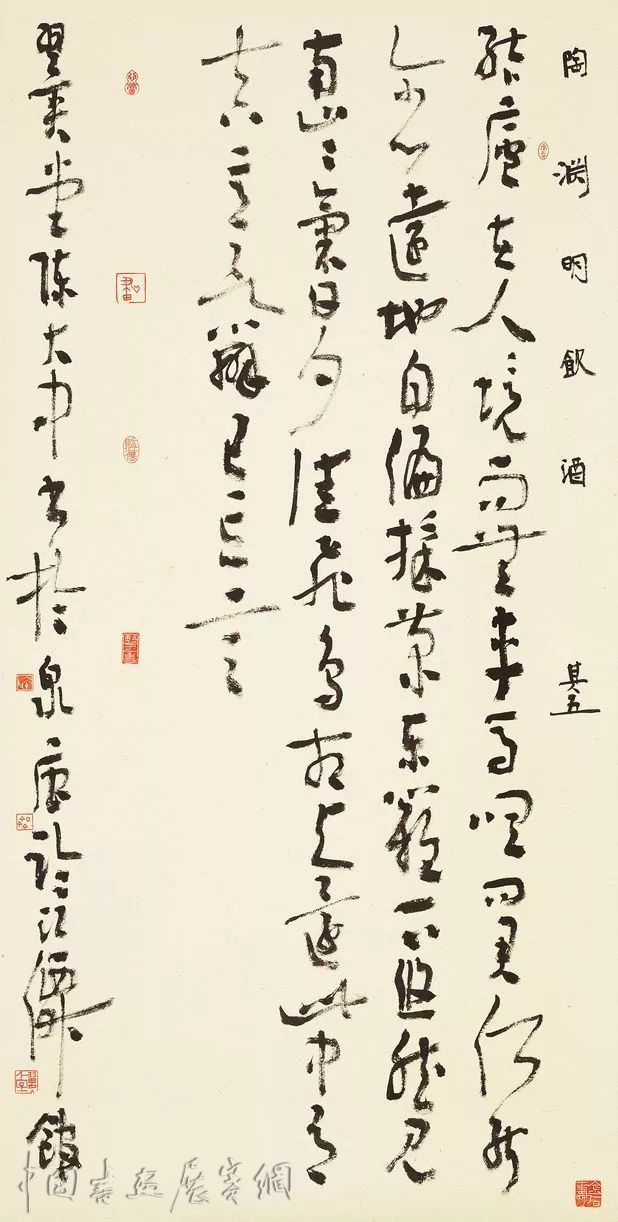 陶淵明飲酒 其五
結廬在人境而無車馬喧問君何能
尔心遠地自偏採菊東籬下悠然見
南山〻氣日夕佳飛鳥相與還此中有
真意欲辯已忘言
堂陳大中書於泉唐臨江僊館
中國書畫展賽網